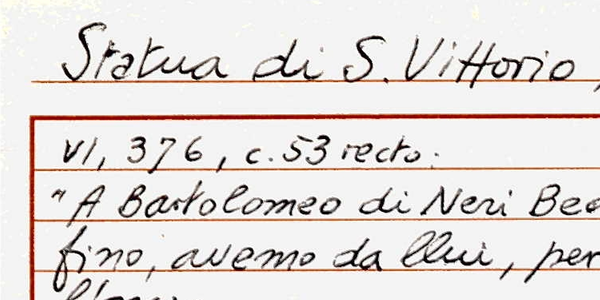 Statua di S. Vittorio,
VI, 376, c. 53 recto.
"A Bartolomeo di Neri
fino, avemo da llui, per